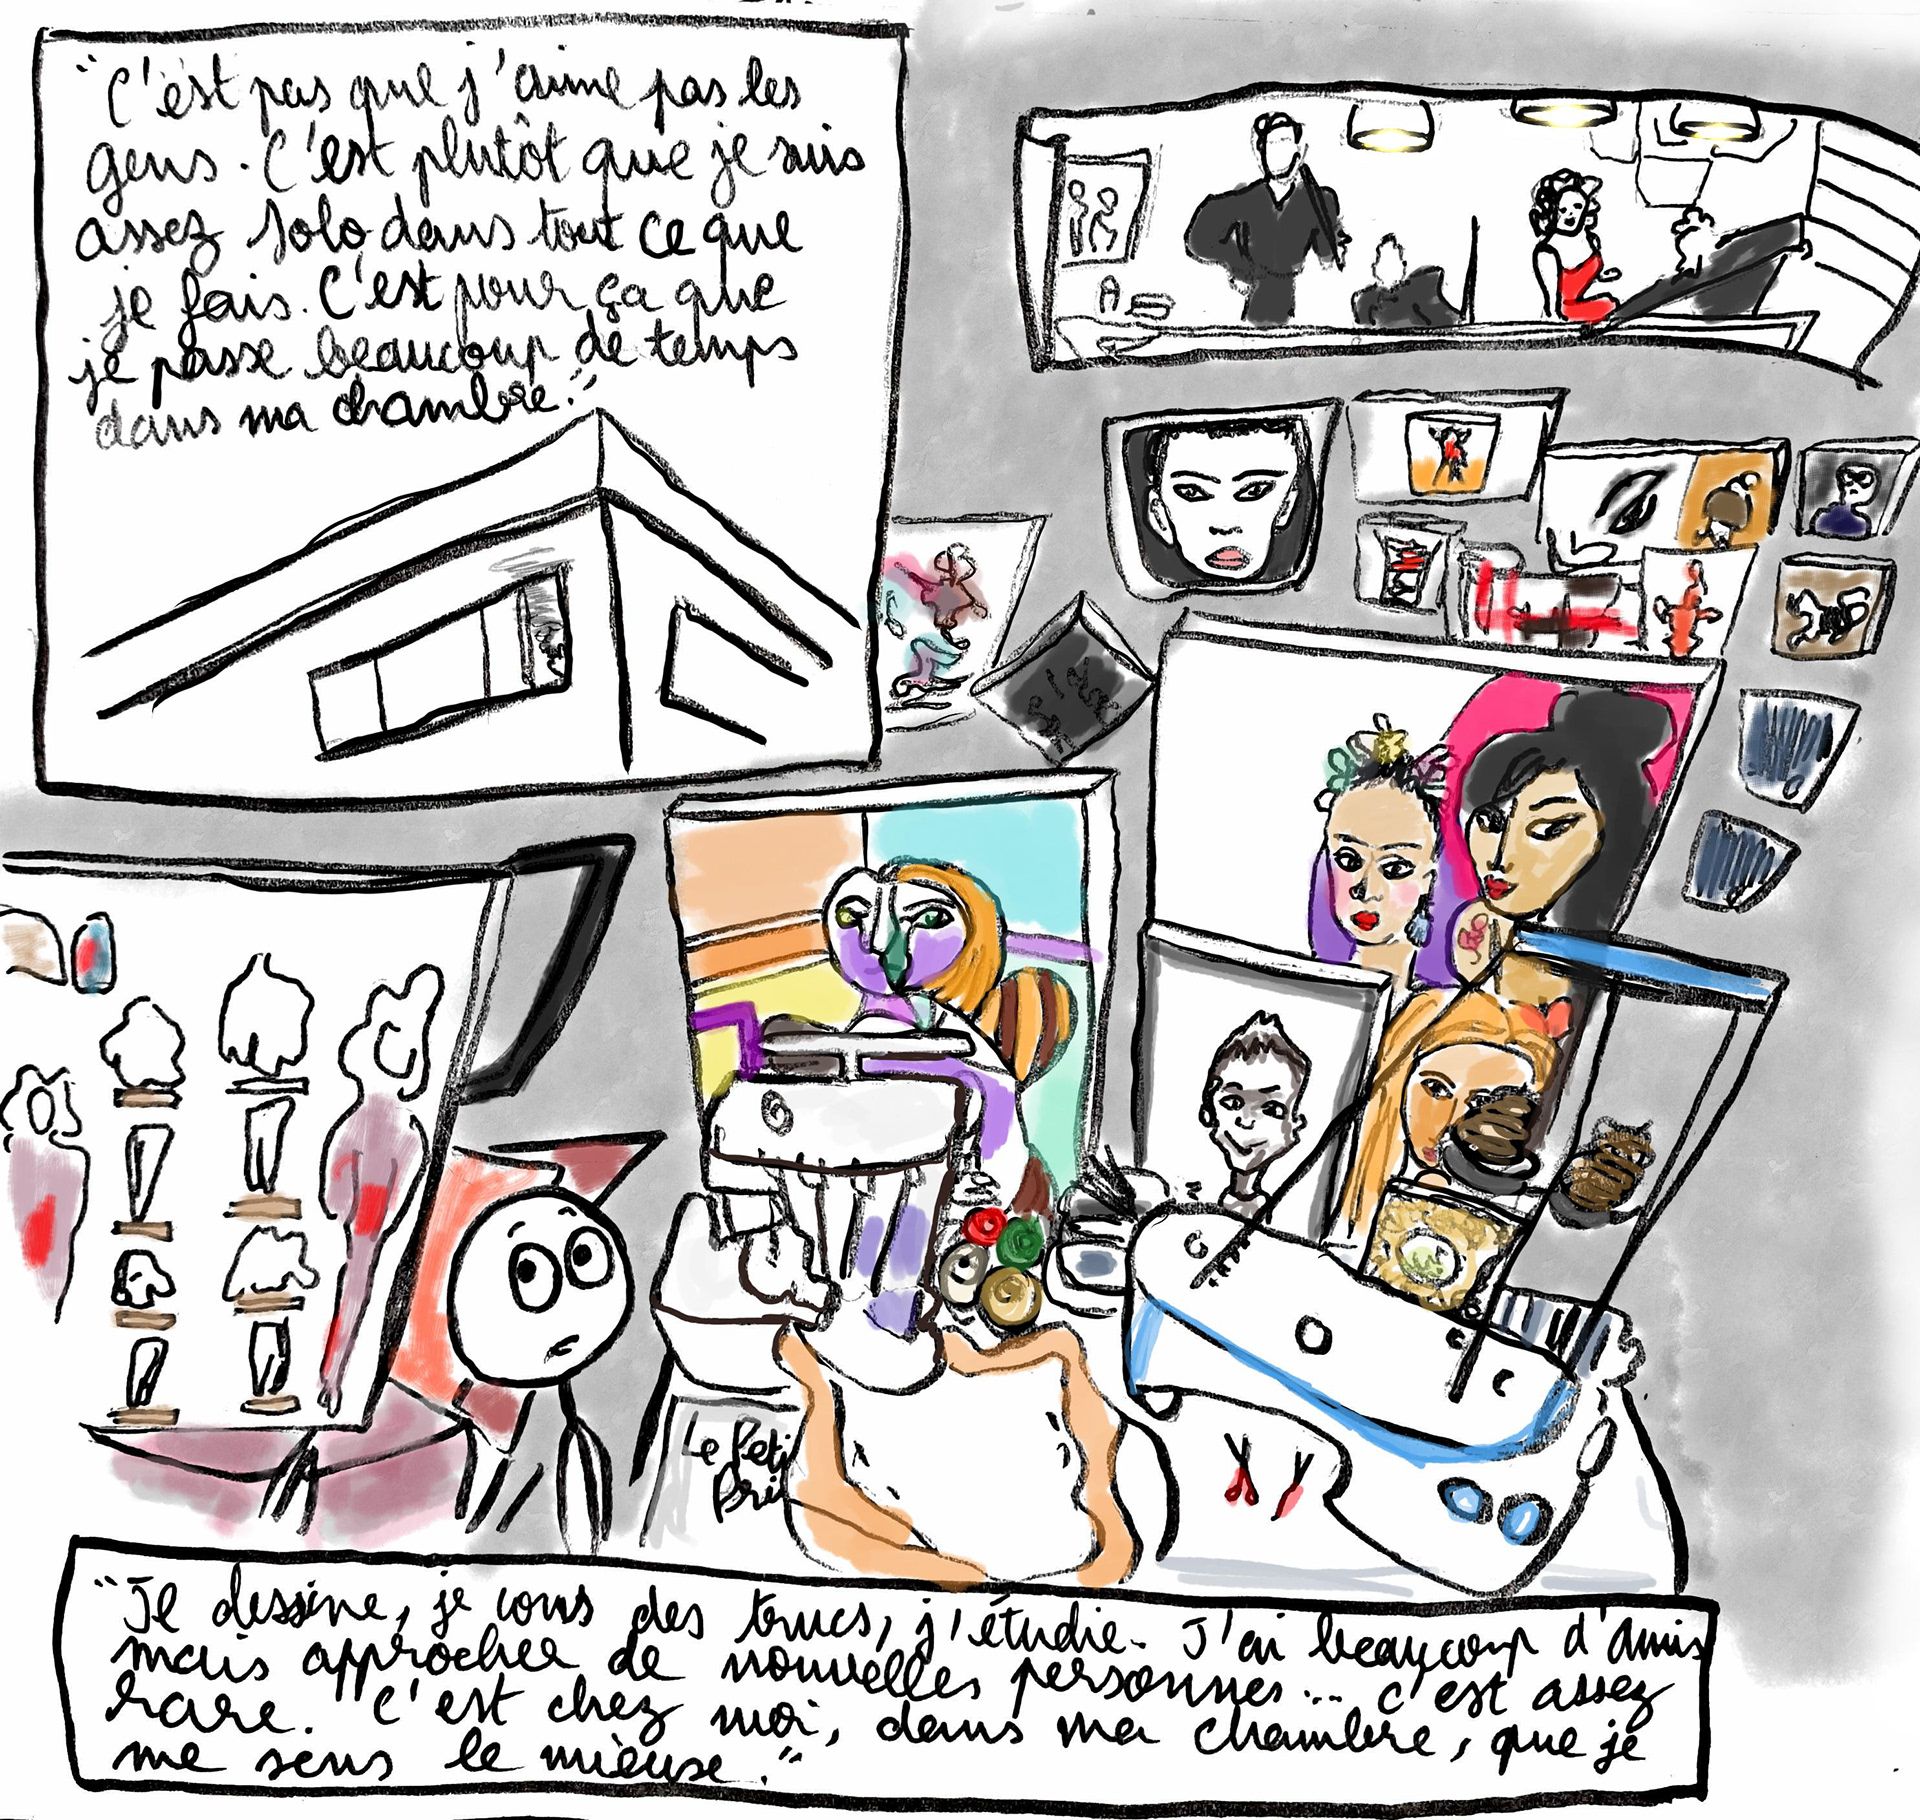 "C'est pas que j'aime pas les
gens. C'est plutôt que je suis
assez solo dans tout ce que
je fais. C'est pour ça que
je passe beaucoup de temps
dans ma chambre."
Le Peti
Pri
"Je dessine, je couds des trucs, j'étudie. J'ai beaucoup d'amis
mais approcher de nouvelles personnes... c'est assez
rare. C'est chez moi, dans ma chambre, que je
me sens le mieux."